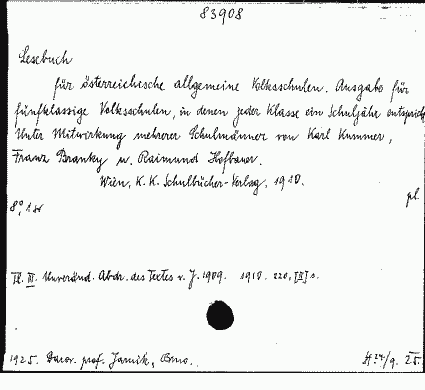 83908
Lesebuch
für österreichische allgemeine Volksschulen. Ausgabe für
fünfklassige Volksschulen, in denen jeder Klasse ein Schuljahr entspricht
Unter Mitwirkung mehrerer Schulmänner von Karl Kummer,
Franz Branky u. Raimund Hofbauer.
Wien, K. K. Schulbücher-Verlag, 1910.
pl.
8°, 1
Tl. III. Unveränd. Abdr. des Textes v. J. 1909. 1910. 220, [II] s.
1925. Darov. prof. Jarník, Brno.
9. 25.